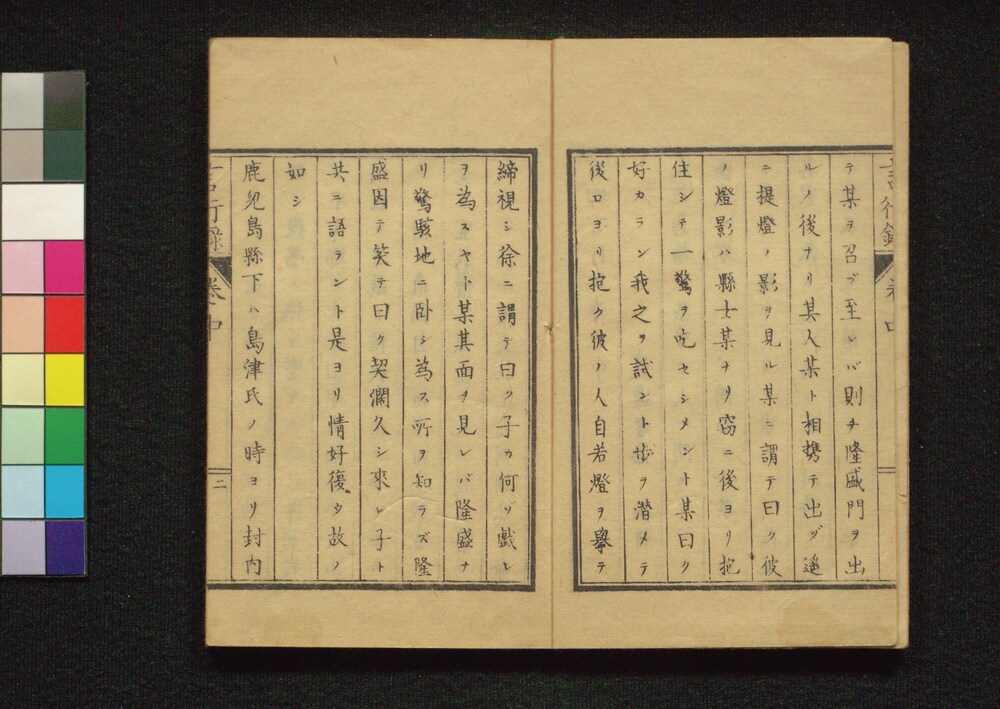 テ某ヲ召ブ至レバ則チ隆盛門ヲ出
ルノ後ナリ其人某ト相携テ出ヅ遥
ニ提燈ノ影ヲ見ル某ニ謂テ曰ク彼
ノ燈影ハ縣士某ナリ窃ニ後ヨリ抱
住シテ一驚ヲ吃セシメント某曰ク
好カラン我之ヲ試ント歩ヲ潜メテ
後ロヨリ抱ク彼ノ人自若燈ヲ擧テ
締視シ徐ニ謂テ曰ク子カ何ゾ戯レ
ヲ為スヤト某其面ヲ見レバ隆盛ナ
リ驚駭地ニ卧シ為ス所ヲ知ラズ隆
盛因テ笑テ曰ク契濶久シ來レ子ト
共ニ語ラント是ヨリ情好復タ故ノ
如シ
鹿児島縣下ハ島津氏ノ時ヨリ封内
言行録
巻中
二